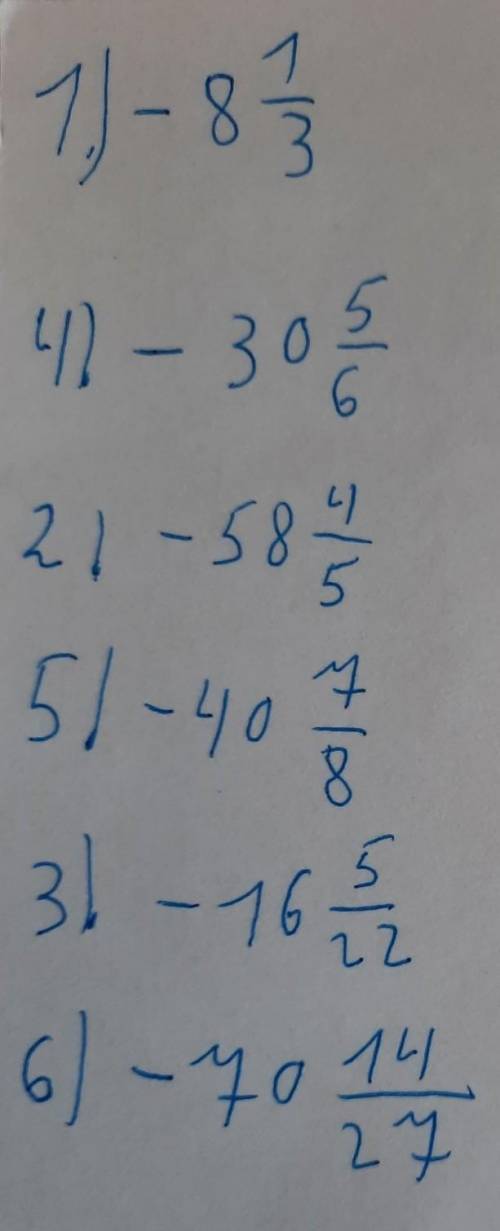 1.) - 8 1/3
4) - 30 5/6
2) - 58 4/5
5) - 40 7/8
3) - 16 5/22
6) - 70 14/27